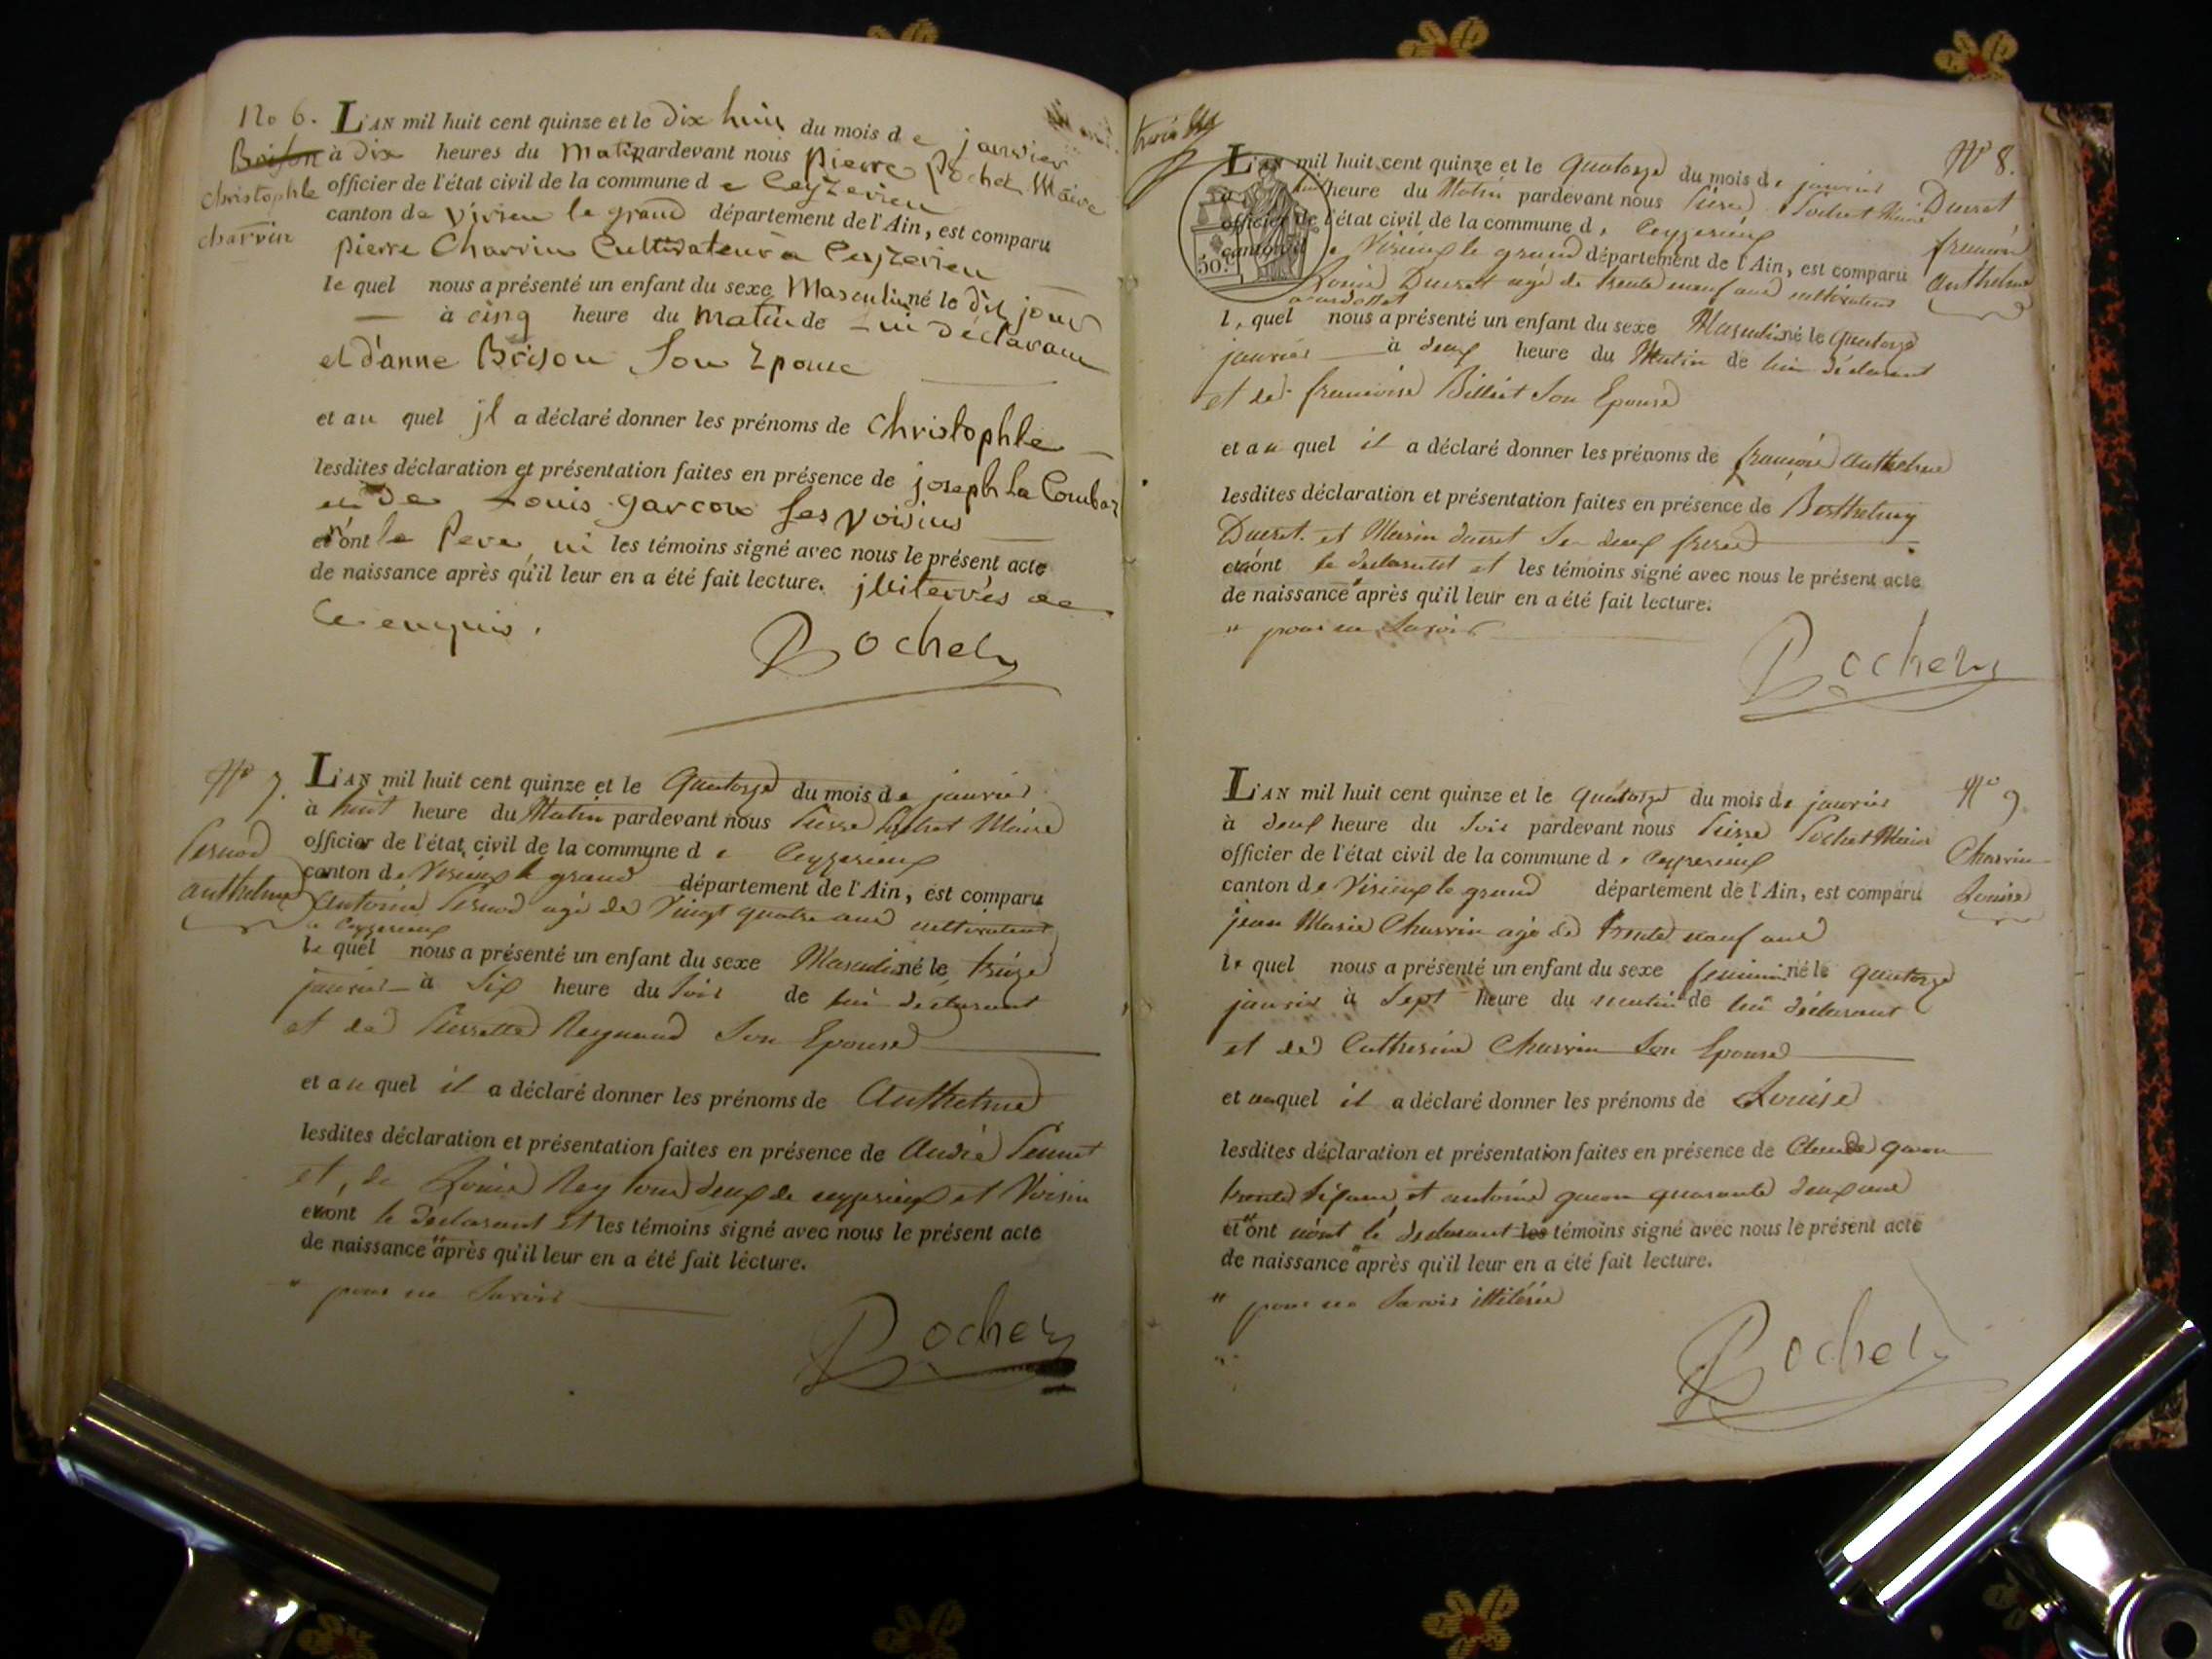 No 6.
Brison
Christophle
charvin
L'AN mil huit cent quinze et le dix huit du mois de janvier
à Dix heures du Matin pardevant nous pierre Rochet Maire
officier de l'état civil de la commune de Ceyzerieu
canton de virieu le grand département de l'Ain, est comparu
pierre Charvin Cultivateur a Ceyzerieu
le quel nous a présenté un enfant du sexe Masculin né le dit jour
— à cinq heure du matin de lui déclarant
et d'anne Brison Son Epouse
et au quel jl a déclaré donner les prénoms de Christophle
lesdites déclaration et présentation faites en présence de joseph La Combaz
et de Louis garcon ses voisins
n'ont le Pere ni les témoins signé avec nous le présent acte
de naissance après qu'il leur en a été fait lecture. jlliterrés de
ce enquis.
Rochet
No 7.
Pernod
Anthelme
L'AN mil huit cent quinze et le Quatorze du mois de janvier
à huit heure du Matin pardevant nous Pierre Rochet Maire
officier de l'état civil de la commune de Ceyzerieux
canton de Virieux le grand département de l'Ain, est comparu
Antoine Pernod agé de Vingt quatre ans cultivateur
a Ceyzerieux
le quel nous a présenté un enfant du sexe Masculin né le treize
janvier à Six heure du Soir de lui declarant
et de Pierrette Reynaud Son Epouse
et au quel il a déclaré donner les prénoms de Anthelme
lesdites déclaration et présentation faites en présence de André
et de Louis Rey tous deux de ceyzerieux et Voisin
n'ont le declarant et les témoins signé avec nous le présent acte
de naissance " après qu'il leur en a été fait lecture.
" pour ne Savoir
Rochet
No 8.
Ducret
françois
anthelme
L'AN mil huit cent quinze et le Quatorze du mois de janvier
à heure du Matin pardevant nous Pierre Rochet Maire
officier de l'état civil de la commune de Ceyzerieux
canton de Virieux le grand département de l'Ain, est comparu
50.
Louis Ducret agé de trente neuf ans cultivateur
l. quel nous a présenté un enfant du sexe Masculin né le Quatorze
janvier à deux heure du Matin de lui déclarant
et de françoise Billiet Son Epouse
et au quel il a déclaré donner les prénoms de françois Anthelme
lesdites déclaration et présentation faites en présence de Berthelmy
Ducret et Marin ducret Ses deux freres
n'ont le declarant et les témoins signé avec nous le présent acte
de naissance " après qu'il leur en a été fait lecture.
" pour ne Savoir
Rochet
No 9
Charvin
Louise
L'AN mil huit cent quinze et le Quatorze du mois de janvier
à deux heure du Soir pardevant nous Pierre Rochet Maire
officier de l'état civil de la commune de Ceyzerieux
canton de Virieux le grand département de l'Ain, est comparu
jean Marie Charvin agé de trente neuf ans
le quel nous a présenté un enfant du sexe feminin né le Quatorze
janvier à Sept heure du matin de lui déclarant
et de Catherine Charvin Son Epouse
et auquel il a déclaré donner les prénoms de Louise
lesdites déclaration et présentation faites en présence de Claude
trente six ans et antoine quarante deux ans
et ont n'ont le declarant les témoins signé avec nous le présent acte
de naissance " après qu'il leur en a été fait lecture.
" pour ne Savoir illitéré
Rochet